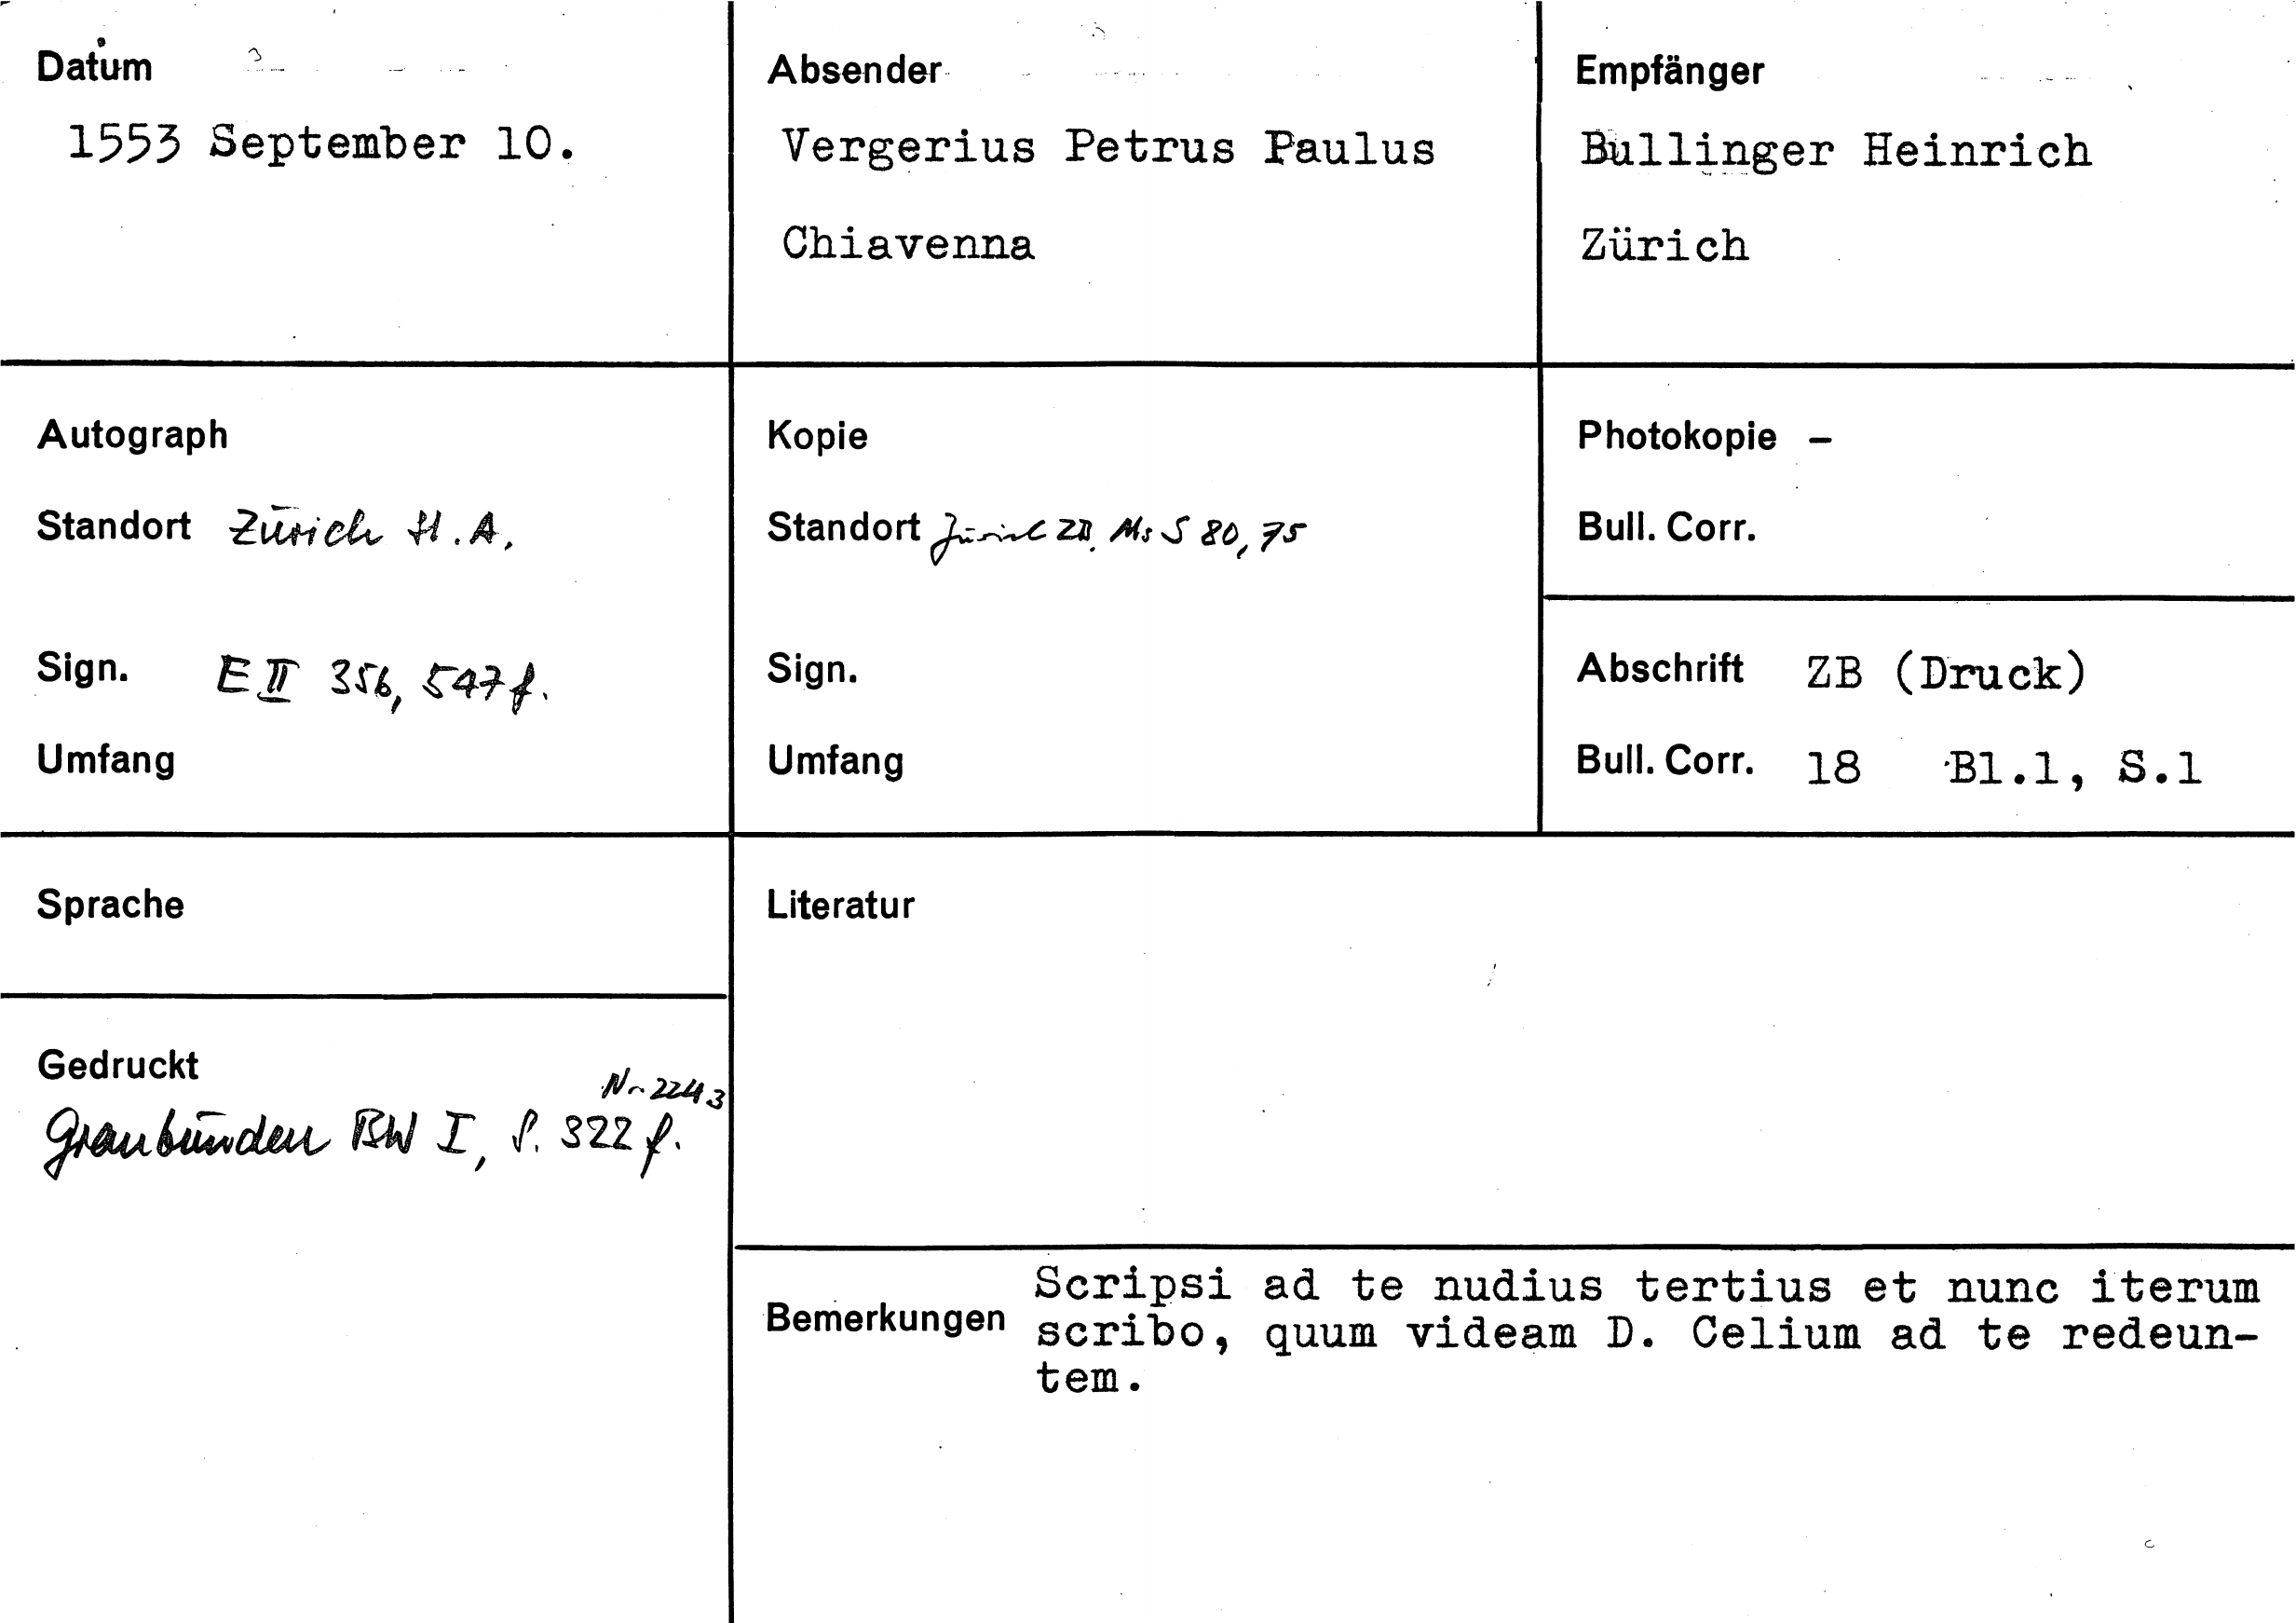 Datum
1553 September 10.
Absender
Vergerius Petrus Paulus
Chiavenna
Empfänger
Bullinger Heinrich
Zürich
Autograph
Standort Zürich St.A.
Sign. E II 356, 547 f.
Umfang
Kopie
Standort Zürich ZB, Ms S 80, 75
Sign.
Umfang
Photokopie –
Bull. Corr.
Abschrift ZB (Druck)
Bull. Corr. 18 Bl.1, S.1
Sprache
Gedruckt
Nr 224 3
Graubünden BW I, S. 322 f.
Literatur
Bemerkungen
Scripsi ad te nudius tertius et nunc iterum
scribo, quum videam D. Celium ad te redeun-
tem.